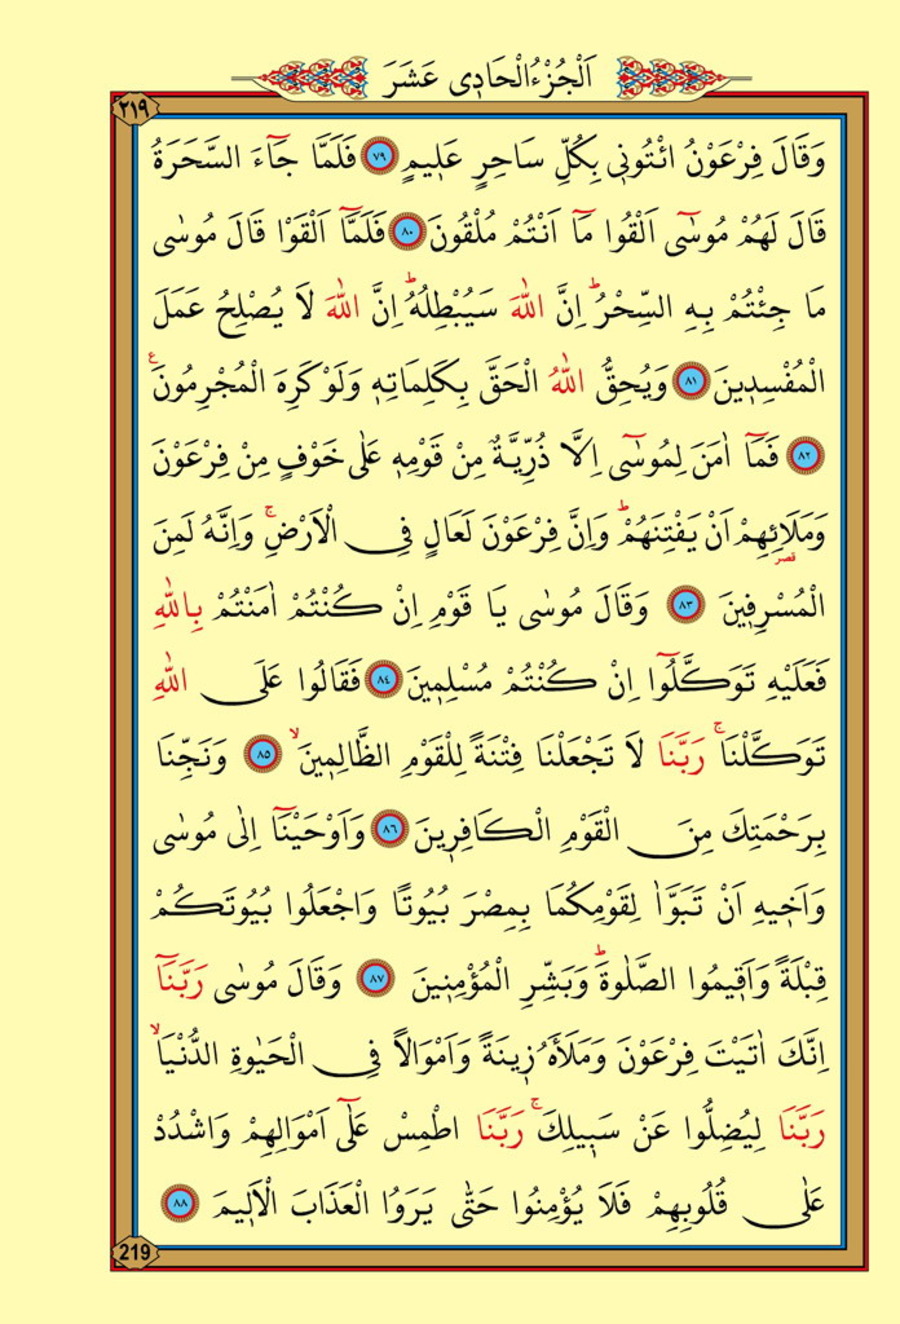 اَلْجُزْءُ الْحَادِي عَشَرَ
٢١٩
وَقَالَ فِرْعَوْنُ ائْتُونِي بِكُلِّ سَاحِرٍ عَلِيمٍ ٧٩ فَلَمَّا جَٓاءَ السَّحَرَةُ
قَالَ لَهُمْ مُوسٰٓى اَلْقُوا مَٓا اَنْتُمْ مُلْقُونَ ٨٠ فَلَمَّٓا اَلْقَوْا قَالَ مُوسٰى
مَا جِئْتُمْ بِهِ السِّحْرُۜ اِنَّ اللّٰهَ سَيُبْطِلُهُۜ اِنَّ اللّٰهَ لَا يُصْلِحُ عَمَلَ
الْمُفْسِدِينَ ٨١ وَيُحِقُّ اللّٰهُ الْحَقَّ بِكَلِمَاتِهِ وَلَوْ كَرِهَ الْمُجْرِمُونَ ع
٨٢ فَمَٓا اٰمَنَ لِمُوسٰٓى اِلَّا ذُرِّيَّةٌ مِنْ قَوْمِهِ عَلٰى خَوْفٍ مِنْ فِرْعَوْنَ
وَمَلَائِهِمْ اَنْ يَفْتِنَهُمْۜ وَاِنَّ فِرْعَوْنَ لَعَالٍ فِي الْاَرْضِۚ وَاِنَّهُ لَمِنَ
قصر
الْمُسْرِفِينَ ٨٣ وَقَالَ مُوسٰى يَا قَوْمِ اِنْ كُنْتُمْ اٰمَنْتُمْ بِاللّٰهِ
فَعَلَيْهِ تَوَكَّلُٓوا اِنْ كُنْتُمْ مُسْلِمِينَ ٨٤ فَقَالُوا عَلَى اللّٰهِ
تَوَكَّلْنَاۚ رَبَّنَا لَا تَجْعَلْنَا فِتْنَةً لِلْقَوْمِ الظَّالِمِينَۙ ٨٥ وَنَجِّنَا
بِرَحْمَتِكَ مِنَ الْقَوْمِ الْكَافِرِينَ ٨٦ وَاَوْحَيْنَٓا اِلٰى مُوسٰى
وَاَخِيهِ اَنْ تَبَوَّاٰ لِقَوْمِكُمَا بِمِصْرَ بُيُوتًا وَاجْعَلُوا بُيُوتَكُمْ
قِبْلَةً وَاَقِيمُوا الصَّلٰوةَۜ وَبَشِّرِ الْمُؤْمِنِينَ ٨٧ وَقَالَ مُوسٰى رَبَّنَٓا
اِنَّكَ اٰتَيْتَ فِرْعَوْنَ وَمَلَاَهُ زِينَةً وَاَمْوَالًا فِي الْحَيٰوةِ الدُّنْيَاۙ
رَبَّنَا لِيُضِلُّوا عَنْ سَبِيلِكَۚ رَبَّنَا اطْمِسْ عَلٰٓى اَمْوَالِهِمْ وَاشْدُدْ
عَلٰى قُلُوبِهِمْ فَلَا يُؤْمِنُوا حَتّٰى يَرَوُا الْعَذَابَ الْاَلِيمَ ٨٨
219